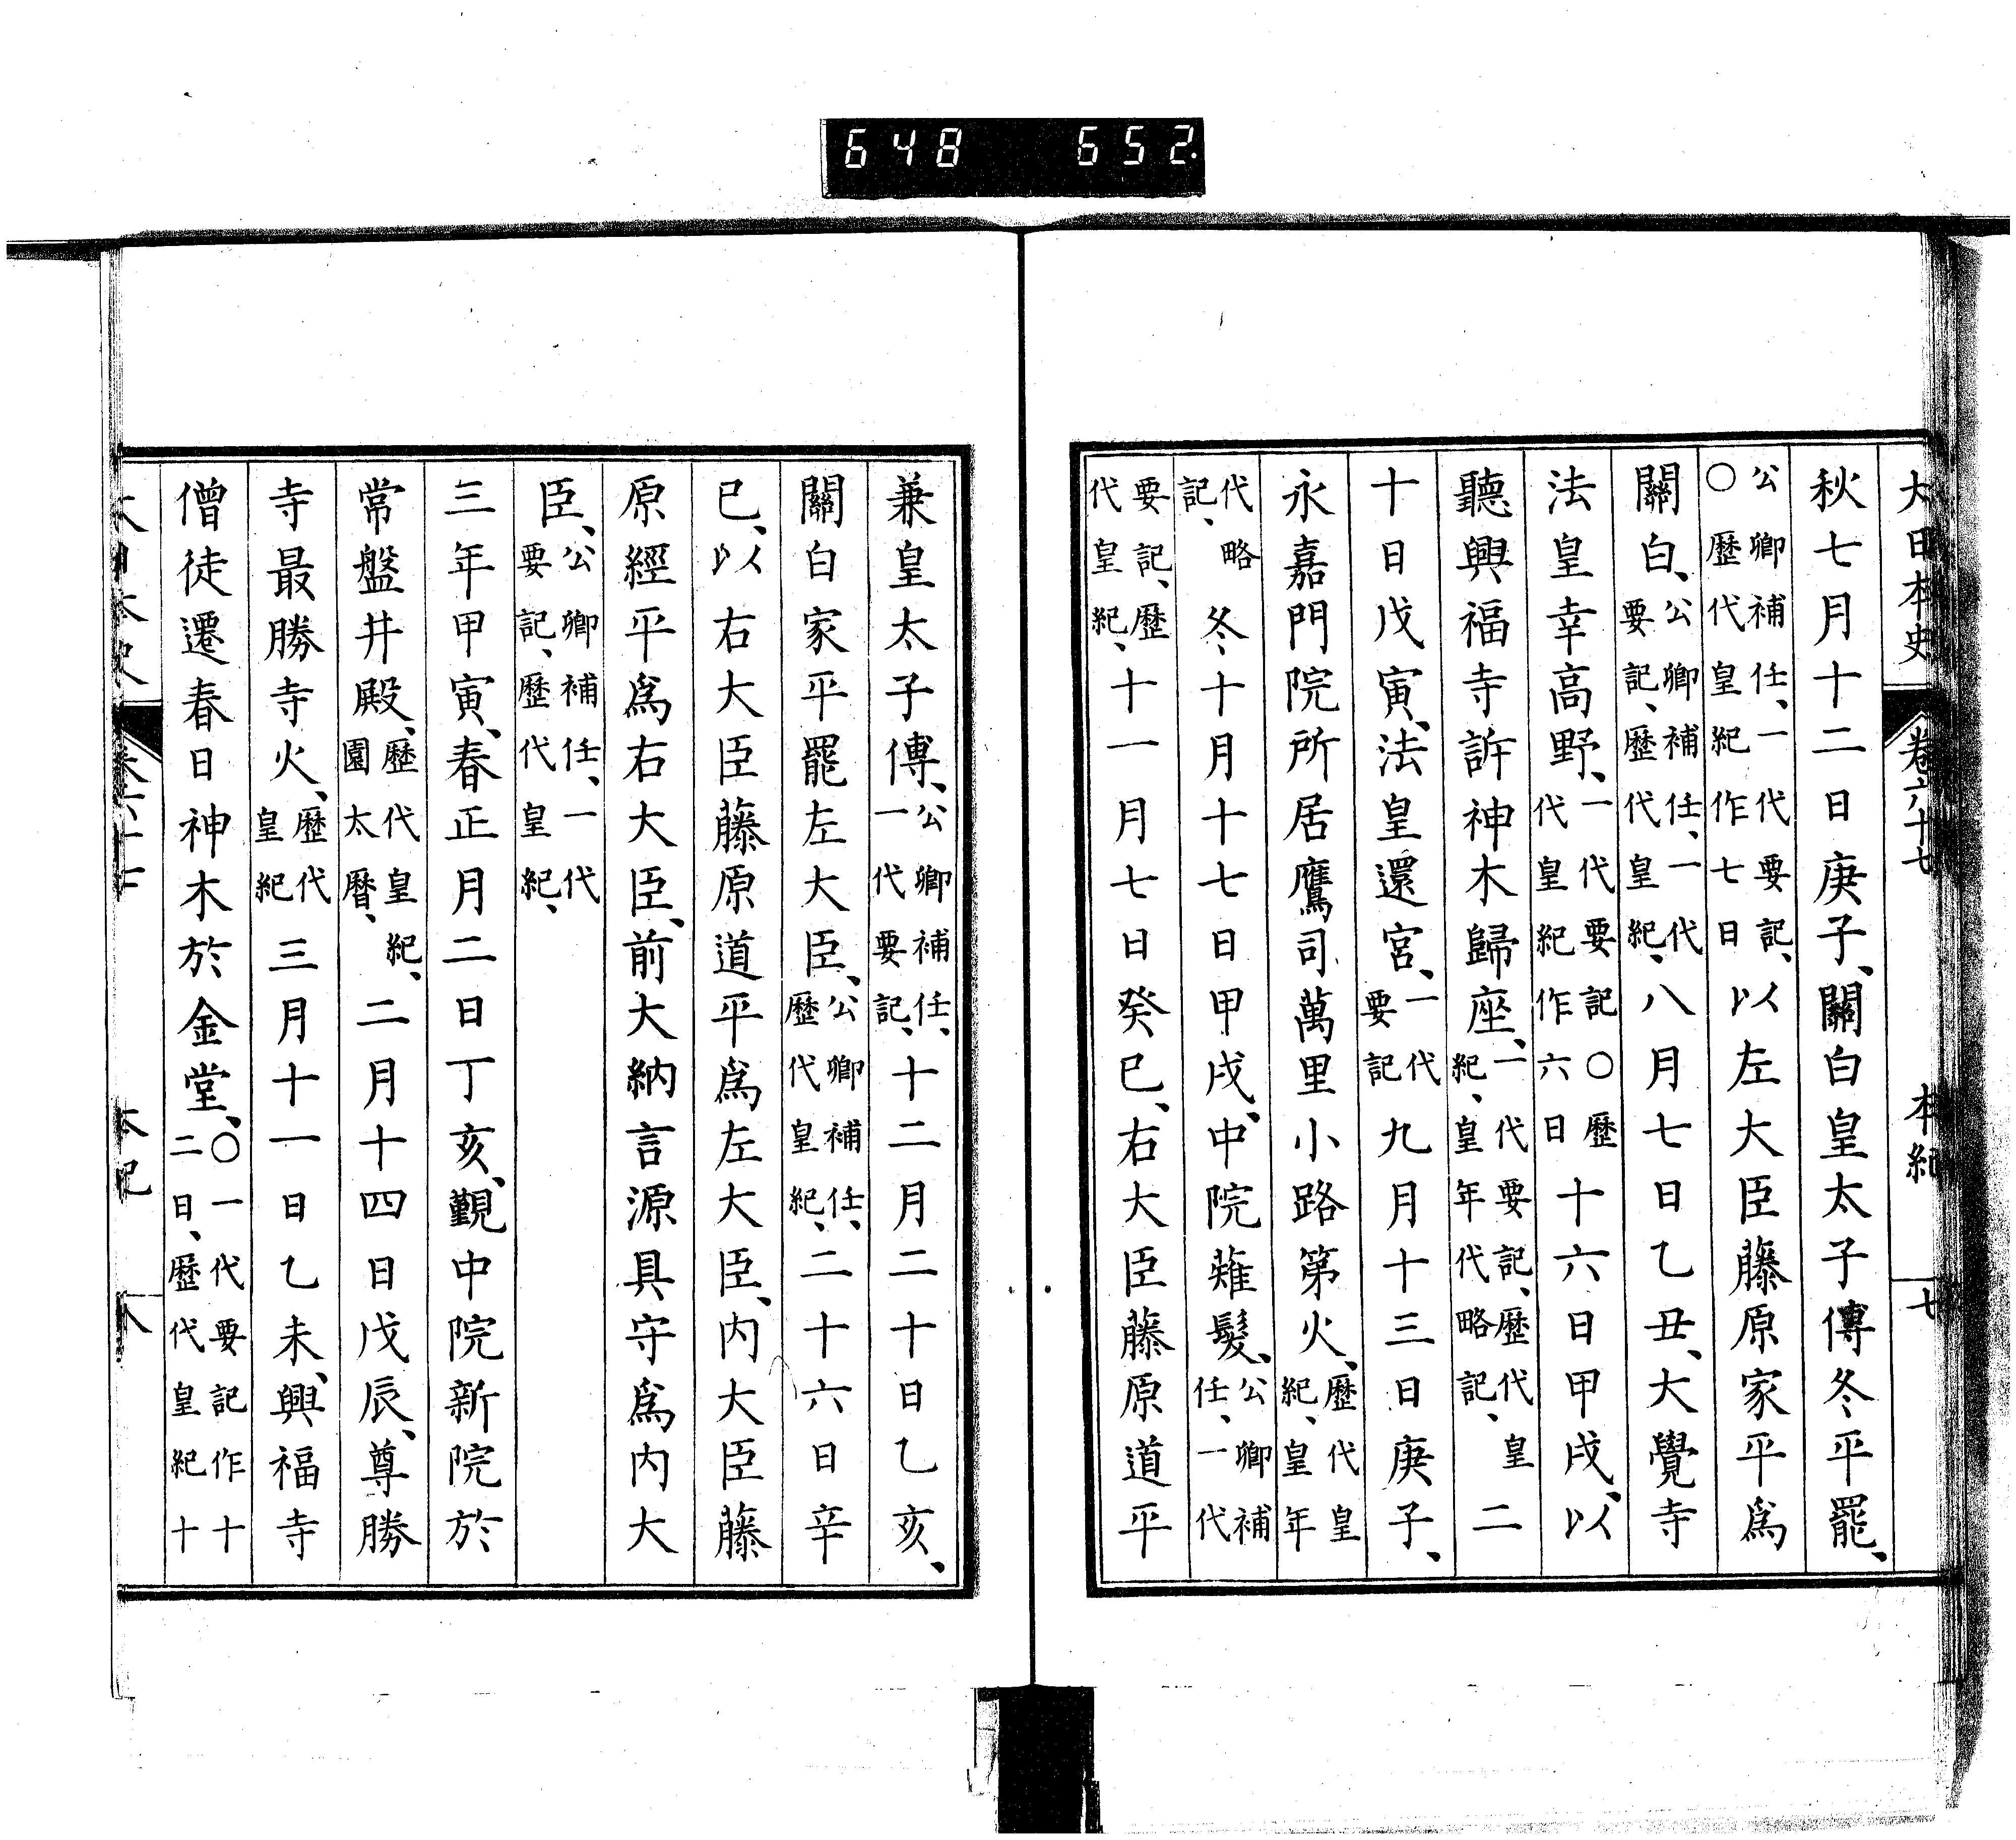 648 652.
大日本史 卷六十七 本紀 七
秋七月十二日庚子、關白皇太子傅冬平罷、
公卿補任、一代要記、○歷代皇紀作七日以左大臣藤原家平爲
關白、公卿補任、一代要記、歷代皇紀、八月七日乙丑、大覺寺
法皇幸高野、一代要記○歷代皇紀作六日十六日甲戌、以
聽興福寺訴神木歸座、一代要記、歷代皇紀、皇年代略記、二
十日戊寅、法皇還宮、一代要記九月十三日庚子、
永嘉門院所居鷹司萬里小路第火、歷代皇紀、皇年
代略記、冬十月十七日甲戌、中院薙髮、公卿補任、一代
要記、歷代皇紀、十一月七日癸巳、右大臣藤原道平
兼皇太子傅、公卿補任、一代要記、十二月二十日乙亥、
關白家平罷左大臣、公卿補任、歷代皇紀、二十六日辛
巳、以右大臣藤原道平爲左大臣、內大臣藤
原經平爲右大臣、前大納言源具守爲內大
臣、公卿補任、一代要記、歷代皇紀、
三年甲寅、春正月二日丁亥、覲中院新院於
常盤井殿、歷代皇紀、園太曆、二月十四日戊辰、尊勝
寺最勝寺火、歷代皇紀三月十一日乙未、興福寺
僧徒遷春日神木於金堂、○一代要記作十二日、歷代皇紀十